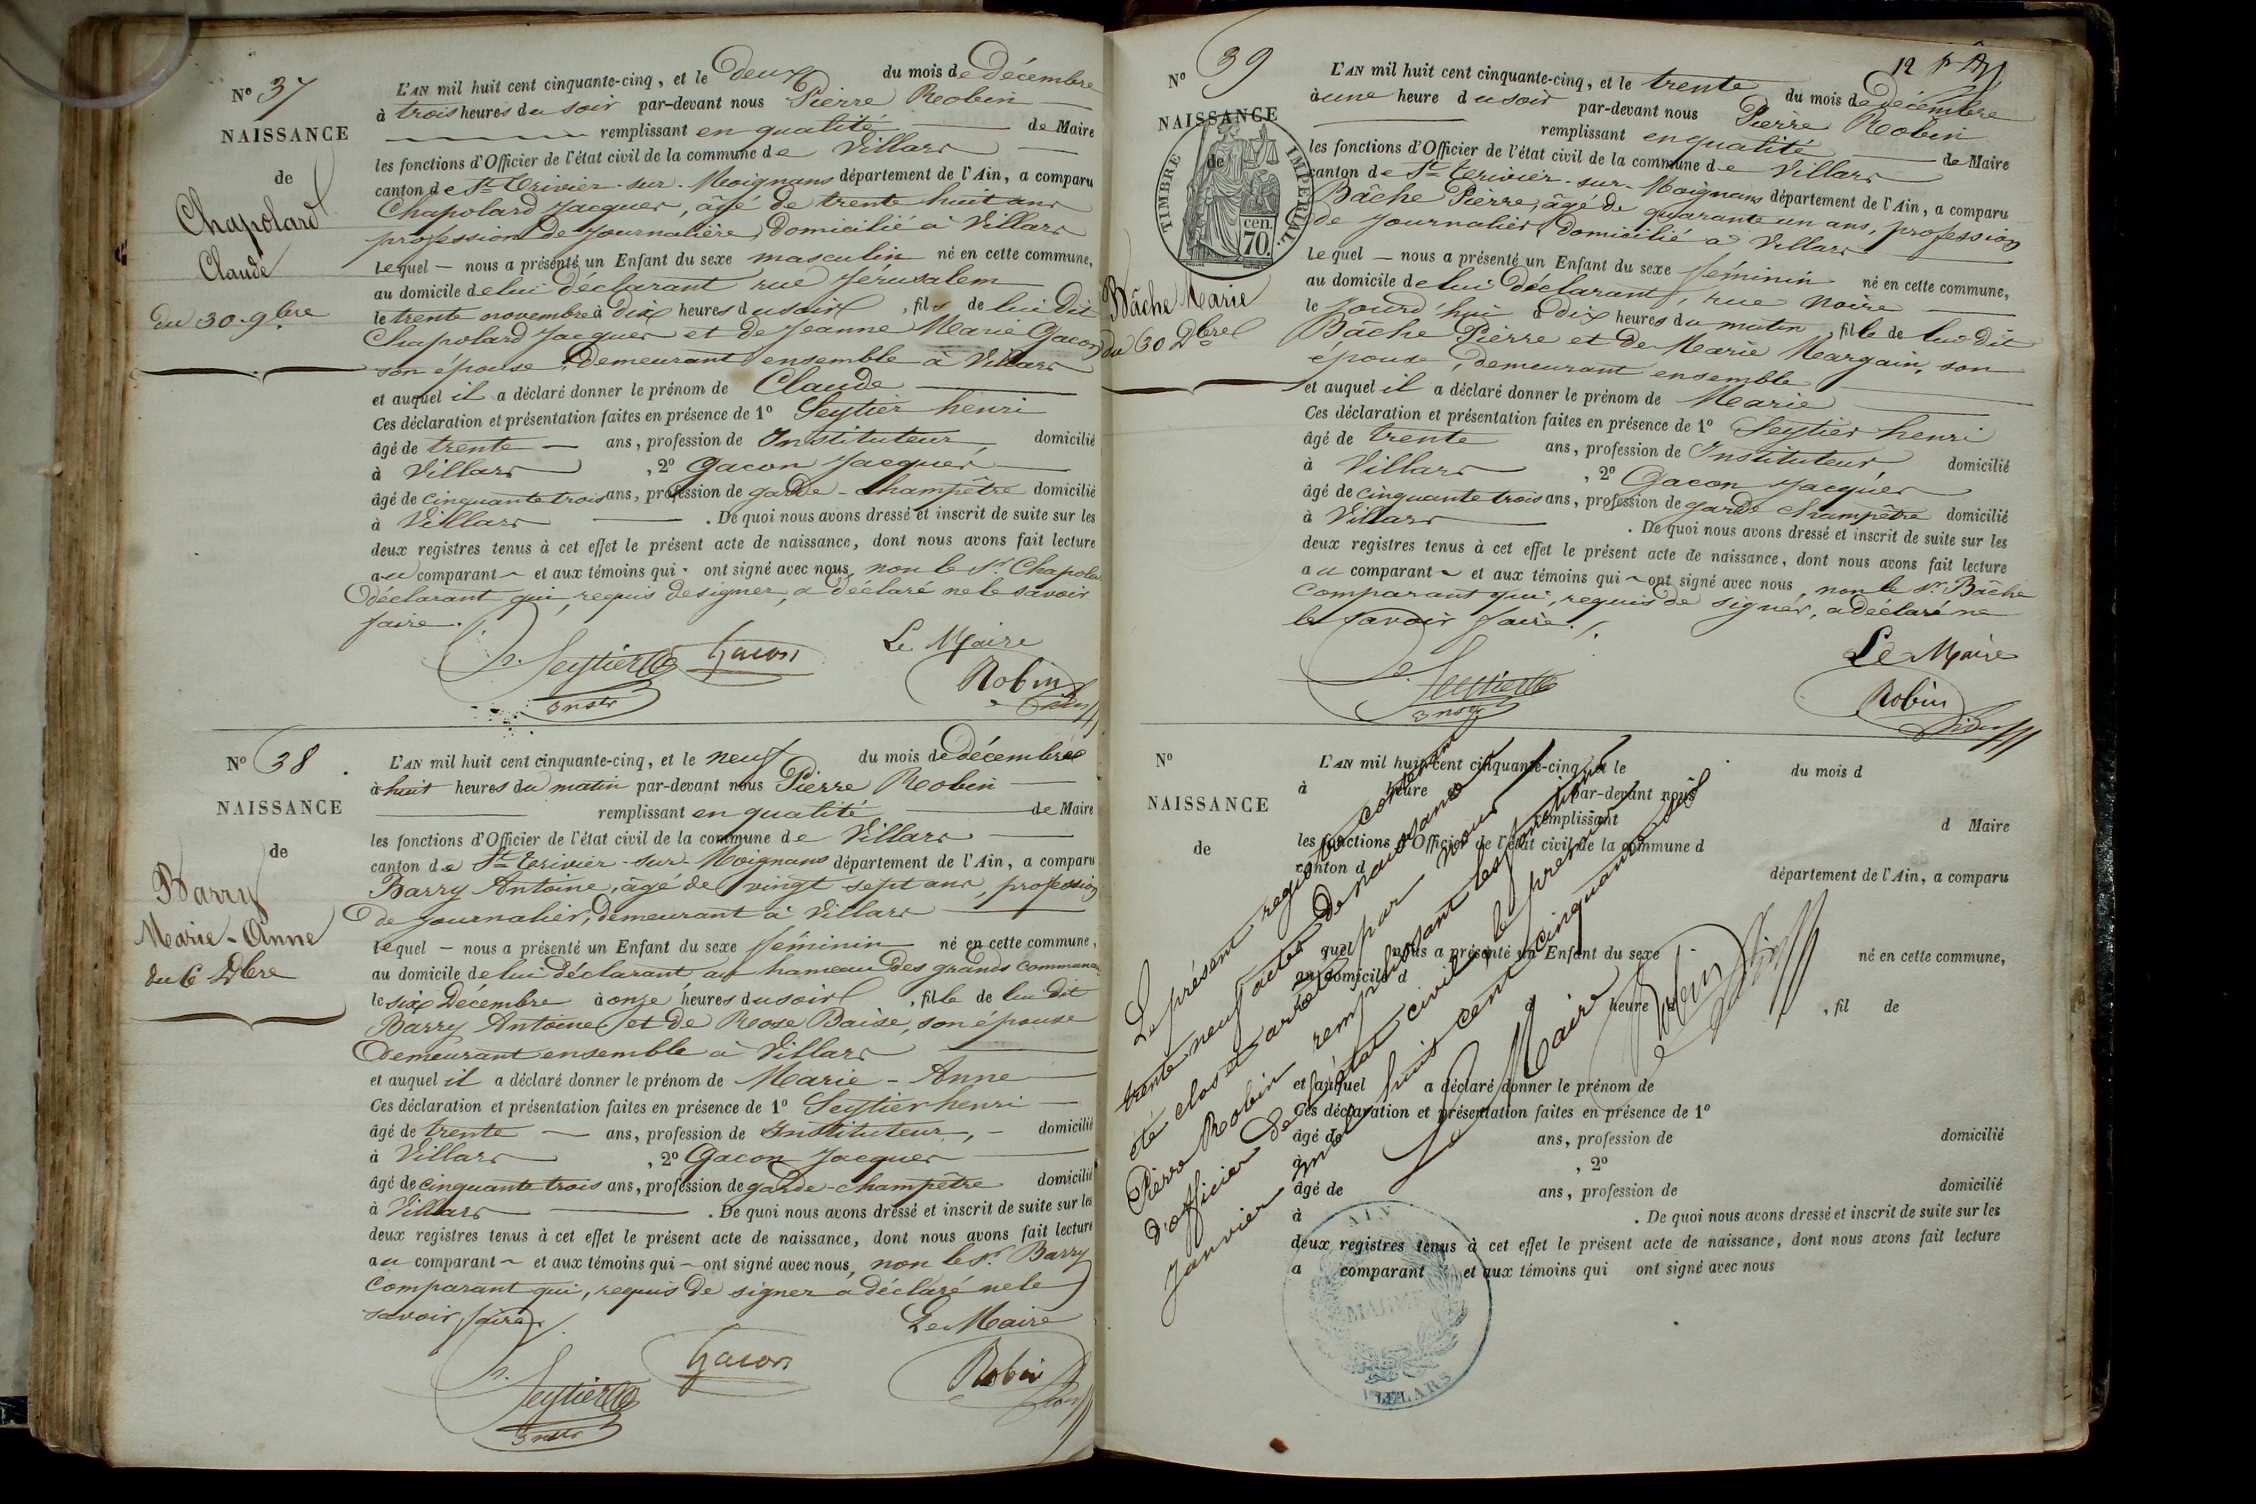 N° 37
NAISSANCE
de
Chapolard
Claude
du 30 9bre
L'AN mil huit cent cinquante-cinq, et le deux du mois de Décembre
à trois heures du soir par-devant nous Pierre Robin
remplissant en qualité de Maire
les fonctions d'Officier de l'état civil de la commune de Villars
canton de St Trivier-sur-Moignans département de l'Ain, a comparu
Chapolard Jacques, âgé de trente huit ans
profession de journalière, domicilié à Villars
lequel nous a présenté un Enfant du sexe masculin né en cette commune,
au domicile de lui déclarant rue Jérusalem
le trente novembre à dix heures du soir, fils de lui dit
Chapolard Jacques et de Jeanne Marie Gacon
son épouse, demeurant ensemble à Villars
et auquel il a déclaré donner le prénom de Claude
Ces déclaration et présentation faites en présence de 1° Seytier henri
âgé de trente ans, profession de Instituteur, domicilié
à Villars, 2° Gacon Jacques
âgé de cinquante trois ans, profession de garde-champêtre domicilié
à Villars. De quoi nous avons dressé et inscrit de suite sur les
deux registres tenus à cet effet le présent acte de naissance, dont nous avons fait lecture
au comparant et aux témoins qui ont signé avec nous, non le Sr Chapola
déclarant qui, requis de signer, a déclaré ne le savoir
faire.
h. Seytier Gacon Le Maire
Instr Robin
N° 38
NAISSANCE
de
Barry
Marie-Anne
du 6 Dbre
L'AN mil huit cent cinquante-cinq, et le neuf du mois de décembre
à huit heures du matin par-devant nous Pierre Robin
remplissant en qualité de Maire
les fonctions d'Officier de l'état civil de la commune de Villars
canton de St Trivier-sur-Moignans département de l'Ain, a comparu
Barry Antoine, âgé de vingt sept ans, profession
de journalier, demeurant à Villars
lequel nous a présenté un Enfant du sexe féminin né en cette commune,
au domicile de lui déclarant au hameau des grands communa
le six Décembre à onze heures du soir, fille de lui dit
Barry Antoine et de Rose Baise, son épouse
demeurant ensemble à Villars
et auquel il a déclaré donner le prénom de Marie-Anne
Ces déclaration et présentation faites en présence de 1° Seytier henri
âgé de trente ans, profession de Instituteur, domicilié
à Villars, 2° Gacon Jacques
âgé de cinquante trois ans, profession de garde-champêtre domicilié
à Villars. De quoi nous avons dressé et inscrit de suite sur les
deux registres tenus à cet effet le présent acte de naissance, dont nous avons fait lecture
au comparant et aux témoins qui ont signé avec nous, non le Sr Barry
comparant qui, requis de signer a déclaré ne le
savoir faire.
Le Maire
h. Seytier Gacon Robin
Instr
12
N° 39
NAISSANCE
de
TIMBRE IMPÉRIAL
70 cen.
Bâche Marie
du 30 Dbre
L'AN mil huit cent cinquante-cinq, et le trente du mois de décembre
à une heure du soir par-devant nous Pierre Robin
remplissant en qualité de Maire
les fonctions d'Officier de l'état civil de la commune de Villars
canton de St Trivier-sur-Moignans département de l'Ain, a comparu
Bâche Pierre, âgé de quarante un ans, profession
de journalier, domicilié à Villars
lequel nous a présenté un Enfant du sexe féminin né en cette commune,
au domicile de lui déclarant, rue Noire
le jourd'hui à dix heures du matin, fille de lui dit
Bâche Pierre et de Marie Margain, son
épouse, demeurant ensemble
et auquel il a déclaré donner le prénom de Marie
Ces déclaration et présentation faites en présence de 1° Seytier henri
âgé de trente ans, profession de Instituteur, domicilié
à Villars, 2° Gacon Jacques
âgé de cinquante trois ans, profession de garde champêtre domicilié
à Villars. De quoi nous avons dressé et inscrit de suite sur les
deux registres tenus à cet effet le présent acte de naissance, dont nous avons fait lecture
au comparant et aux témoins qui ont signé avec nous, non le Sr Bâche
comparant qui, requis de signer, a déclaré ne
le savoir faire.
Le Maire
Seytier Robin
Instr
N°
NAISSANCE
de
L'AN mil huit cent cinquante-cinq, et le du mois d
à heure par-devant nous
remplissant d Maire
les fonctions d'Officier de l'état civil de la commune d
canton d département de l'Ain, a comparu
quel nous a présenté un Enfant du sexe né en cette commune,
au domicile d
à heure d, fil de
et auquel a déclaré donner le prénom de
Ces déclaration et présentation faites en présence de 1°
âgé de ans, profession de domicilié
à, 2°
âgé de ans, profession de domicilié
à. De quoi nous avons dressé et inscrit de suite sur les
deux registres tenus à cet effet le présent acte de naissance, dont nous avons fait lecture
a comparant et aux témoins qui ont signé avec nous
Le présent registre contenant
trente neuf actes de naissance a
été clos et arrêté par nous
Pierre Robin remplissant les fonctions
d'officier de l'état civil, le premier
janvier mil huit cent cinquante six
Le Maire
Robin
AIN
MAIRIE
VILLARS